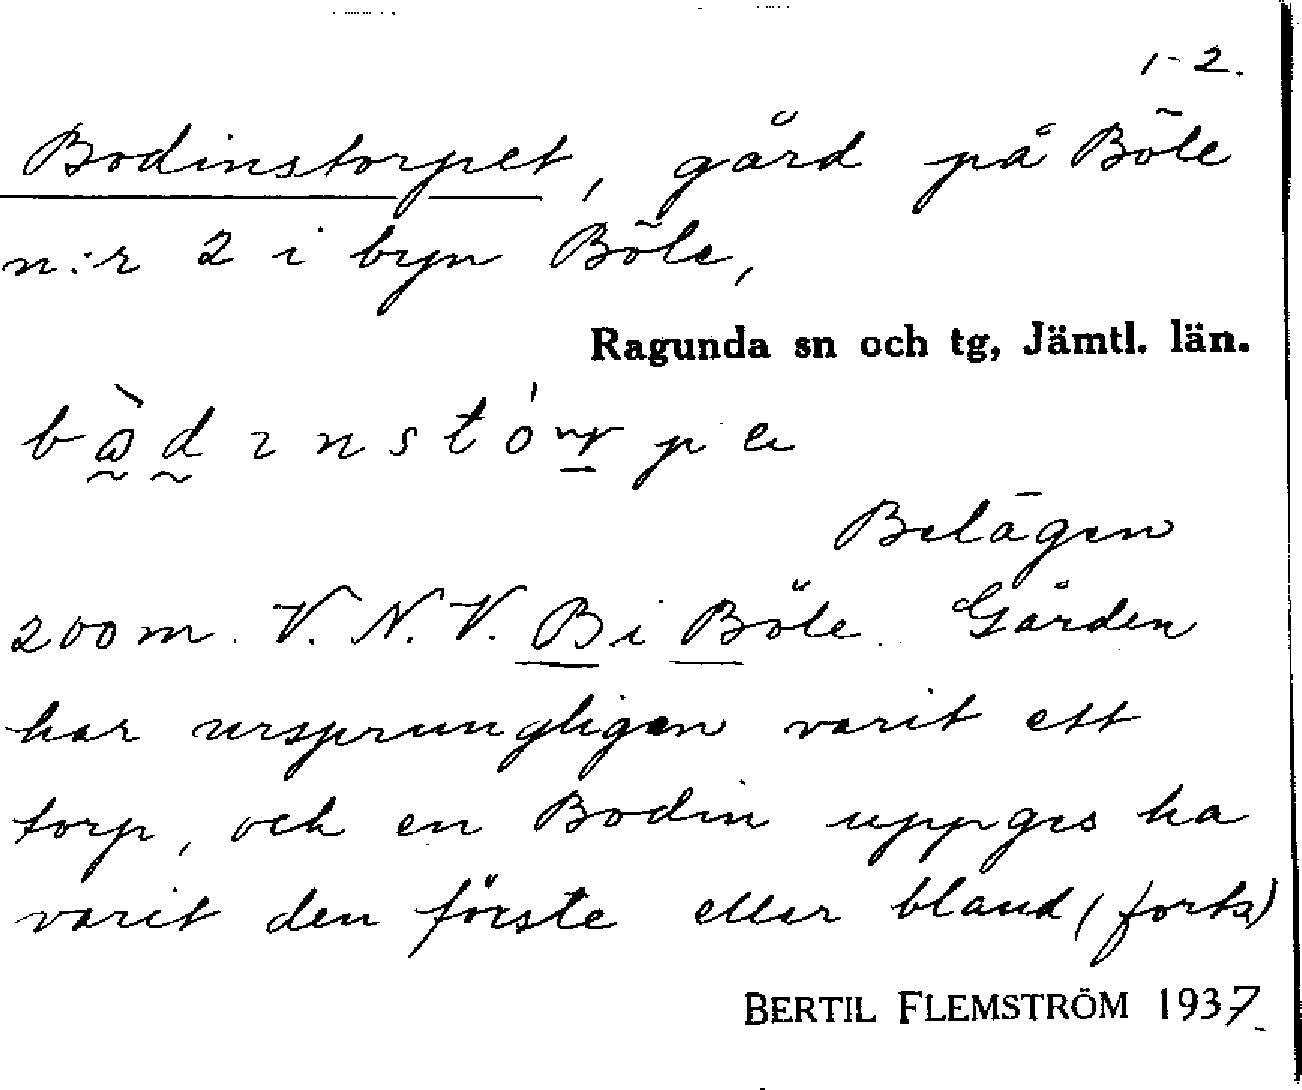 1-2.
Bodinstorpet, gård på Böle
n:r 2 i byn Böle,
Ragunda sn och tg, Jämtl. län.
Belägen
200 m. V. N. V. B i Böle. Gården
har ursprungligen varit ett
torp, och en Bodin uppges ha
varit den förste eller bland (forts)
BERTIL FLEMSTRÖM 1937